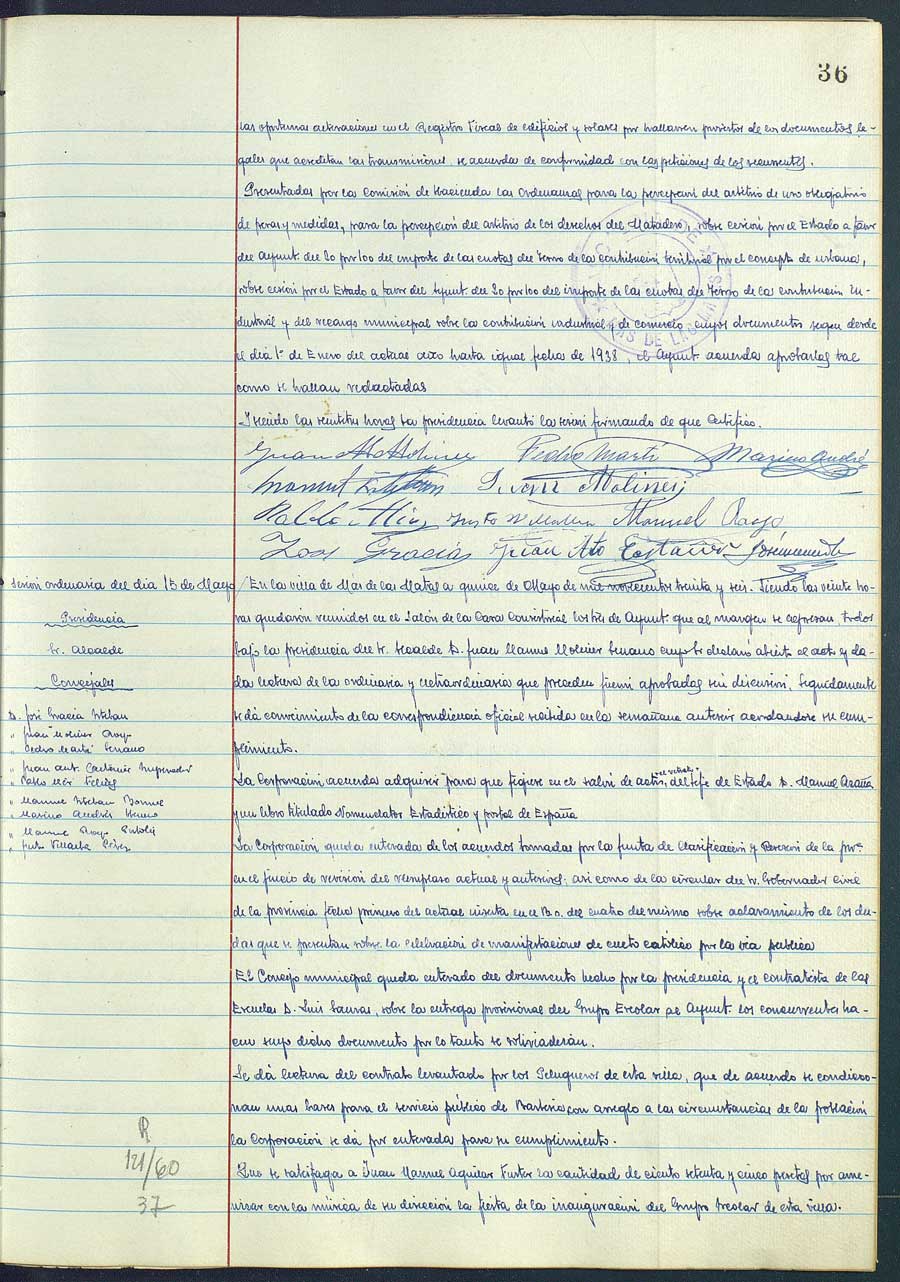 36
las oportunas alteraciones en el Registro Fiscal de edificios y solares por hallarse provistos de los documentos le-
gales que acreditan las transmisiones se acuerda de conformidad con las peticiones de los recurrentes.
Presentadas por la Comisión de Hacienda las ordenanzas para la percepción del arbitrio de uso obligatorio
de pesas y medidas, para la percepción del arbitrio de los derechos del Matadero, sobre cesión por el Estado a favor
del Ayunt. del 20 por 100 del importe de las cuotas del Tesoro de la contribución territorial por el concepto de urbana,
sobre cesión por el Estado a favor del Ayunt. del 20 por 100 del importe de las cuotas del Tesoro de la contribución in-
dustrial y del recargo municipal sobre la contribución industrial y de comercio cuyos documentos regen desde
el día 1º de Enero del actual año hasta igual fecha de 1938, el Ayunt. acuerda aprobarlas tal
como se hallan redactadas
Y siendo las veintitres horas la presidencia levantó la sesión firmando de que certifico.
Juan Ml Moliner Pedro Martí Marino Andrés
Manuel Esteban Juan Moliner
Pablo Mir Justo Villalba Manuel Royo
José Gracia Juan Ato Castañer
MAS DE LAS MATAS
Sesión ordinaria del día 15 de Mayo
Presidencia
Sr. Alcalde
Concejales
D. José Gracia Esteban
" Juan Moliner Royo
" Pedro Martí Serrano
" Juan Ant. Castañer Emperador
" Pablo Mir Feliz
" Manuel Esteban Bonne
" Marino Andrés
" Manuel Royo
" Justo Villalba
En la villa de Mas de las Matas a quince de Mayo de mil novecientos treinta y seis. Siendo las veinte ho-
ras quedaron reunidos en el Salón de la Casa Consistorial los Sres de Ayunt. que al margen se expresan todos
bajo la presidencia del Sr. Alcalde D. Juan Manuel Moliner Serrano cuyo Sr. declaro abierto el acto y da-
da lectura de la ordinaria y extraordinaria que preceden fueron aprobadas sin discusión. Seguidamente
se dá conocimiento de la correspondencia oficial recibida en la semana anterior acordandose su cum-
plimiento.
La Corporación acuerda adquirir para que figure en el salón de actos, el retrato del Jefe de Estado D. Manuel Azaña
y un libro titulado Nomenclator Estadístico y postal de España
La Corporación queda enterada de los acuerdos tomados por la Junta de Clasificación y Revisión de la prª
en el juicio de revisión del reemplazo actual y anteriores; asi como de la circular del Sr. Gobernador civil
de la provincia fecha primero del actual inserta en el B.O. del cuatro del mismo sobre aclaramiento de las du-
das que se presentan sobre la celebración de manifestaciones de culto católico por la vía publica
El Concejo municipal queda enterado del documento hecho por la presidencia y el contratista de las
Escuelas D. Luis Sauras, sobre la entrega provisional del Grupo Escolar al Ayunt. los concurrentes ha-
cen suyo dicho documento por lo tanto se solidariaderán.
Se dá lectura del contrato levantado por los Peluqueros de esta villa, que de acuerdo se condicio-
nan unas bases para el servicio público de Barberia con arreglo a las circunstancias de la población
la Corporación se dá por enterada para su cumplimiento.
Que se satisfaga a Juan Manuel Aguilar Fuster la cantidad de ciento setenta y cinco pesetas por ame-
nizar con la música de su dirección la fiesta de la inauguración del Grupo Escolar de esta villa.
R
121/60
37